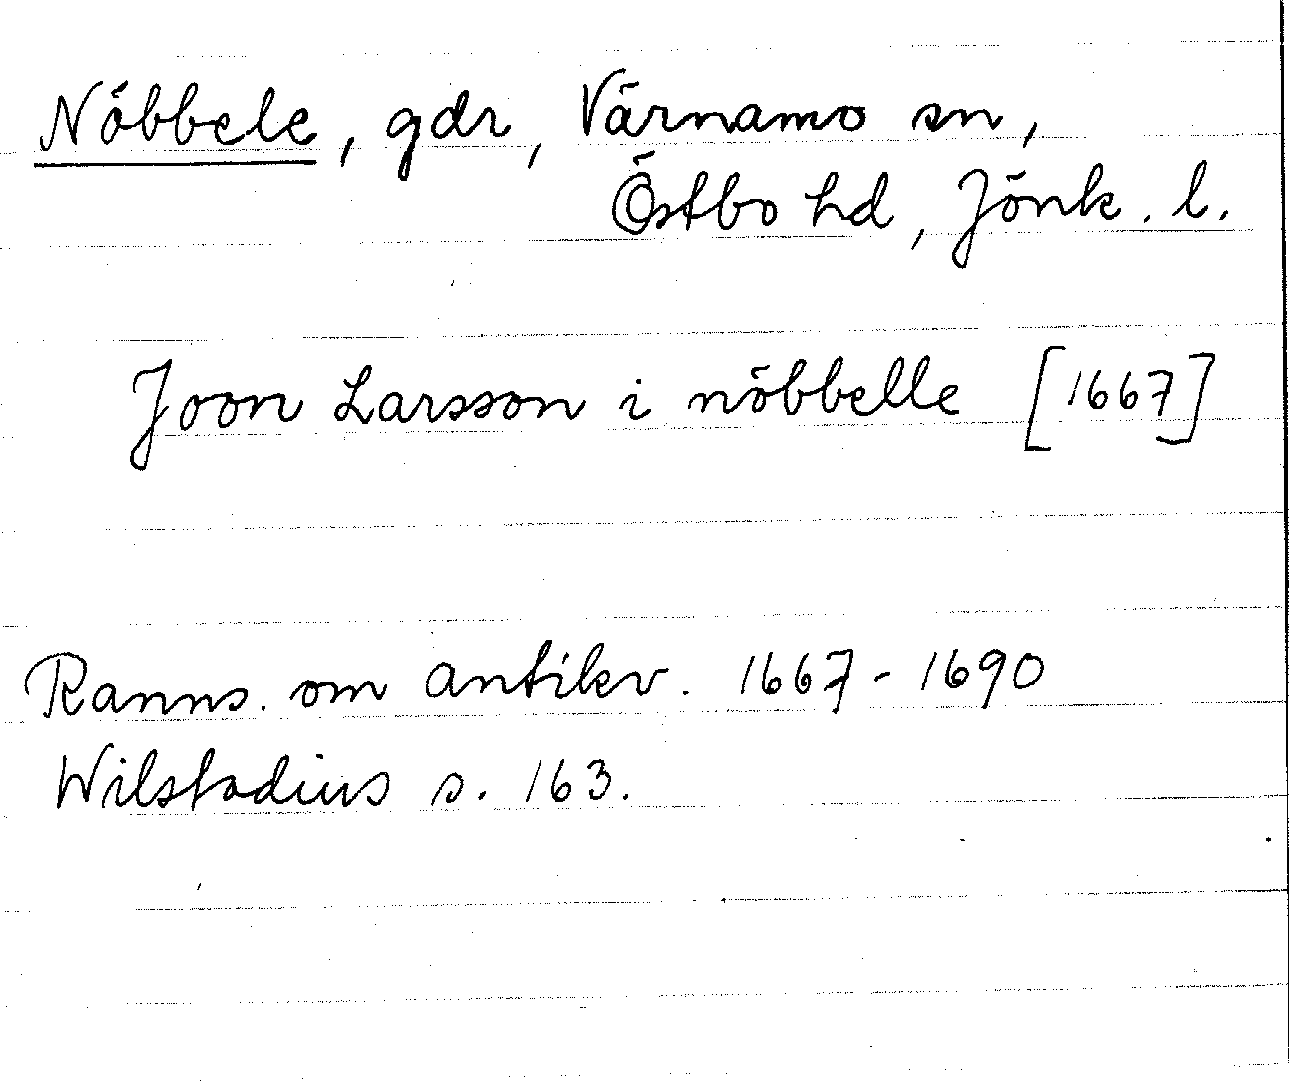 Nöbbele, gdr, Värnamo sn,
Östbo hd, Jönk. l.
Joon Larsson i nöbbelle [1667]
Ranns. om antikv. 1667-1690
Wilstadius s. 163.